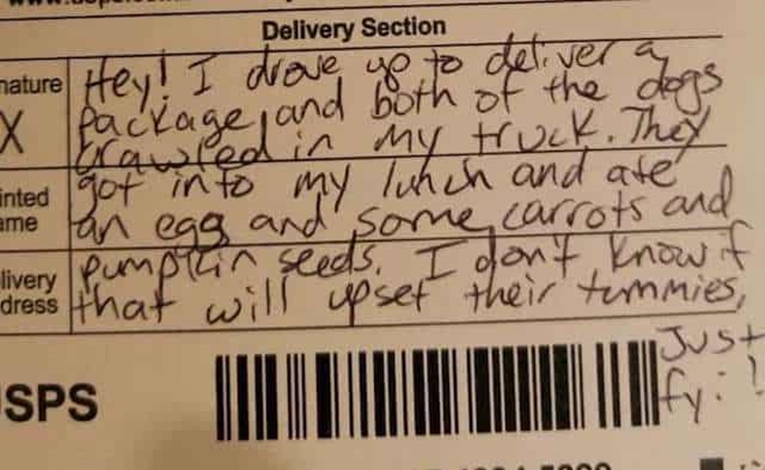 Delivery Section
nature
X
Hey! I drove up to deliver a
package, and both of the dogs
crawled in my truck. They
inted
ame
got into my lunch and ate
an egg and some carrots and
livery
dress
pumpkin seeds. I don't know if
that will upset their tummies,
Just
fy:!
SPS